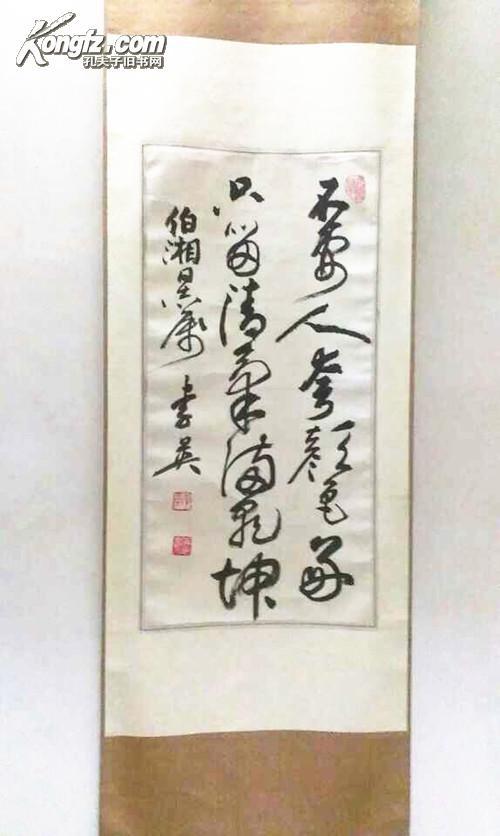 Kongfz.com
孔夫子旧书网
不要人夸颜色好
只留清气满乾坤
伯湘吴属
李英